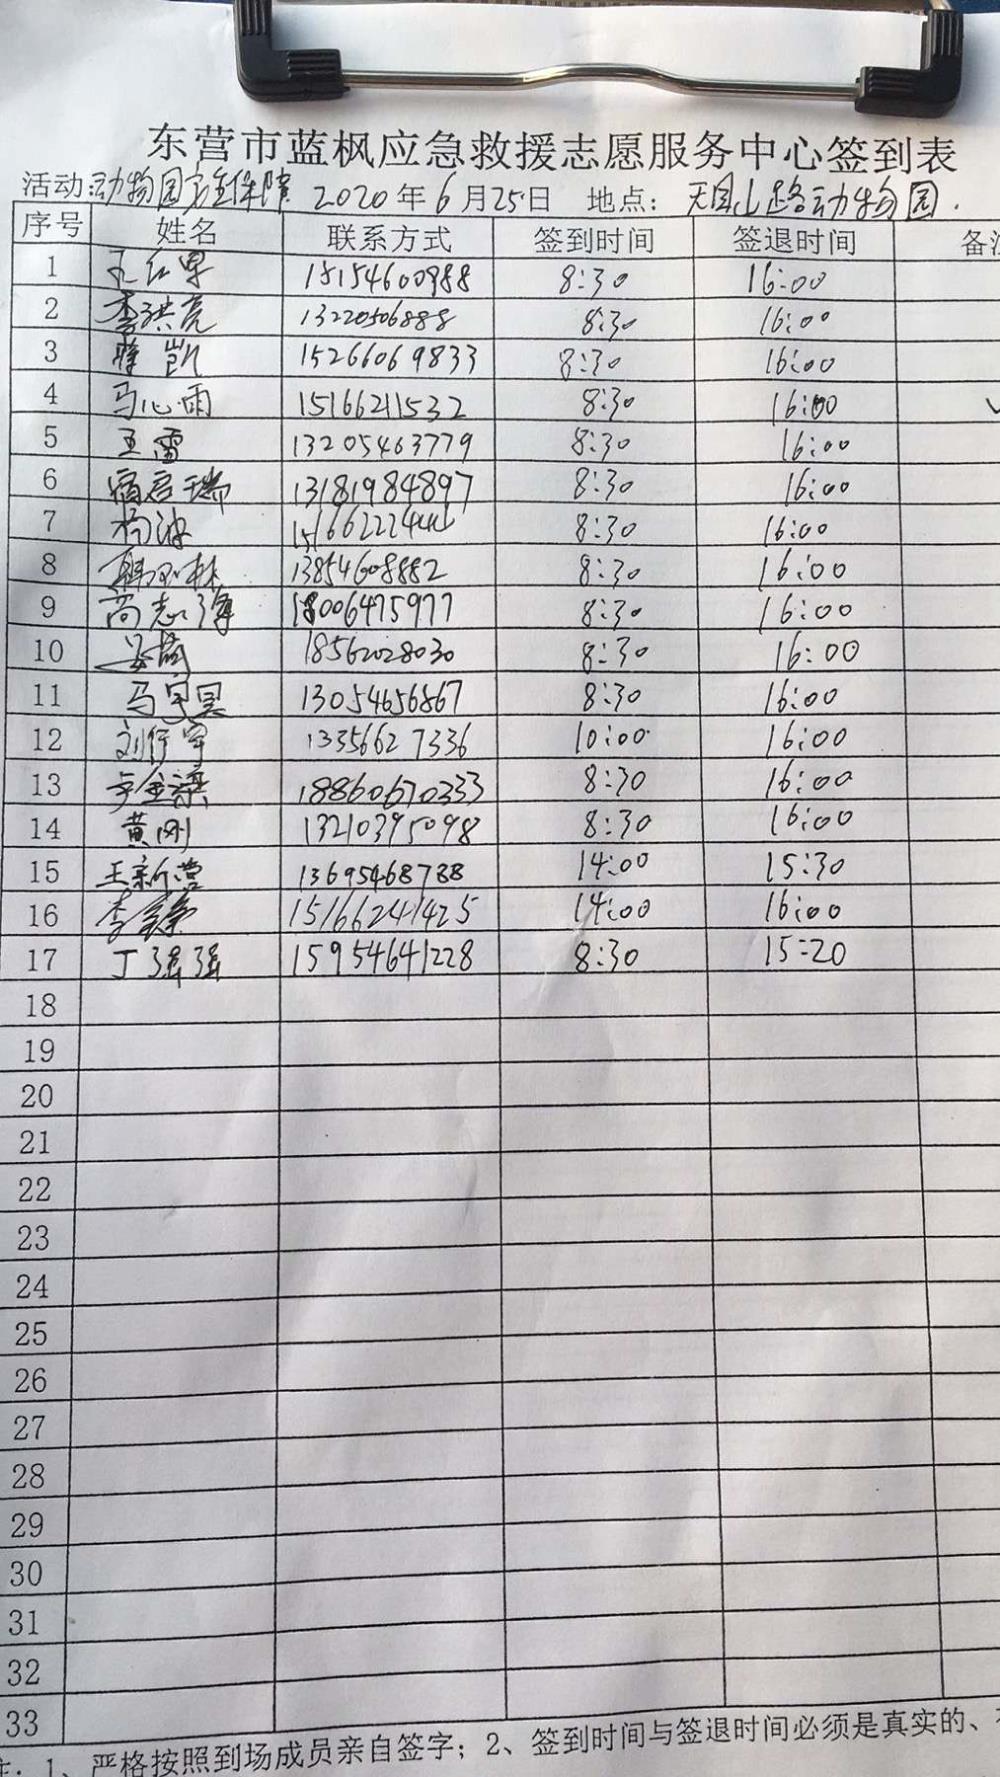 东营市蓝枫应急救援志愿服务中心签到表
活动:动物园安全保障 2020年6月25日 地点: 天目山路动物园.
序号 姓名 联系方式 签到时间 签退时间 备注
1 孔红军 15154600988 8:30 16:00
2 李洪亮 13220506888 8:30 16:00
3 蒋凯 15266069833 8:30 16:00
4 马心雨 15166211532 8:30 16:00
5 王雷 13205463779 8:30 16:00
6 宿启瑞 13181984897 8:30 16:00
7 杨波 8:30 16:00
8 13854608882 8:30 16:00
9 尚志强 18006475977 8:30 16:00
10 18562028030 8:30 16:00
11 马昊昊 13054656867 8:30 16:00
12 刘行宇 13356627336 10:00 16:00
13 18860670333 8:30 16:00
14 黄刚 13210395098 8:30 16:00
15 王新营 13695468788 14:00 15:30
16 李 15166241425 14:00 16:00
17 丁强强 15954641228 8:30 15:20
18
19
20
21
22
23
24
25
26
27
28
29
30
31
32
33
注: 1、严格按照到场成员亲自签字; 2、签到时间与签退时间必须是真实的、